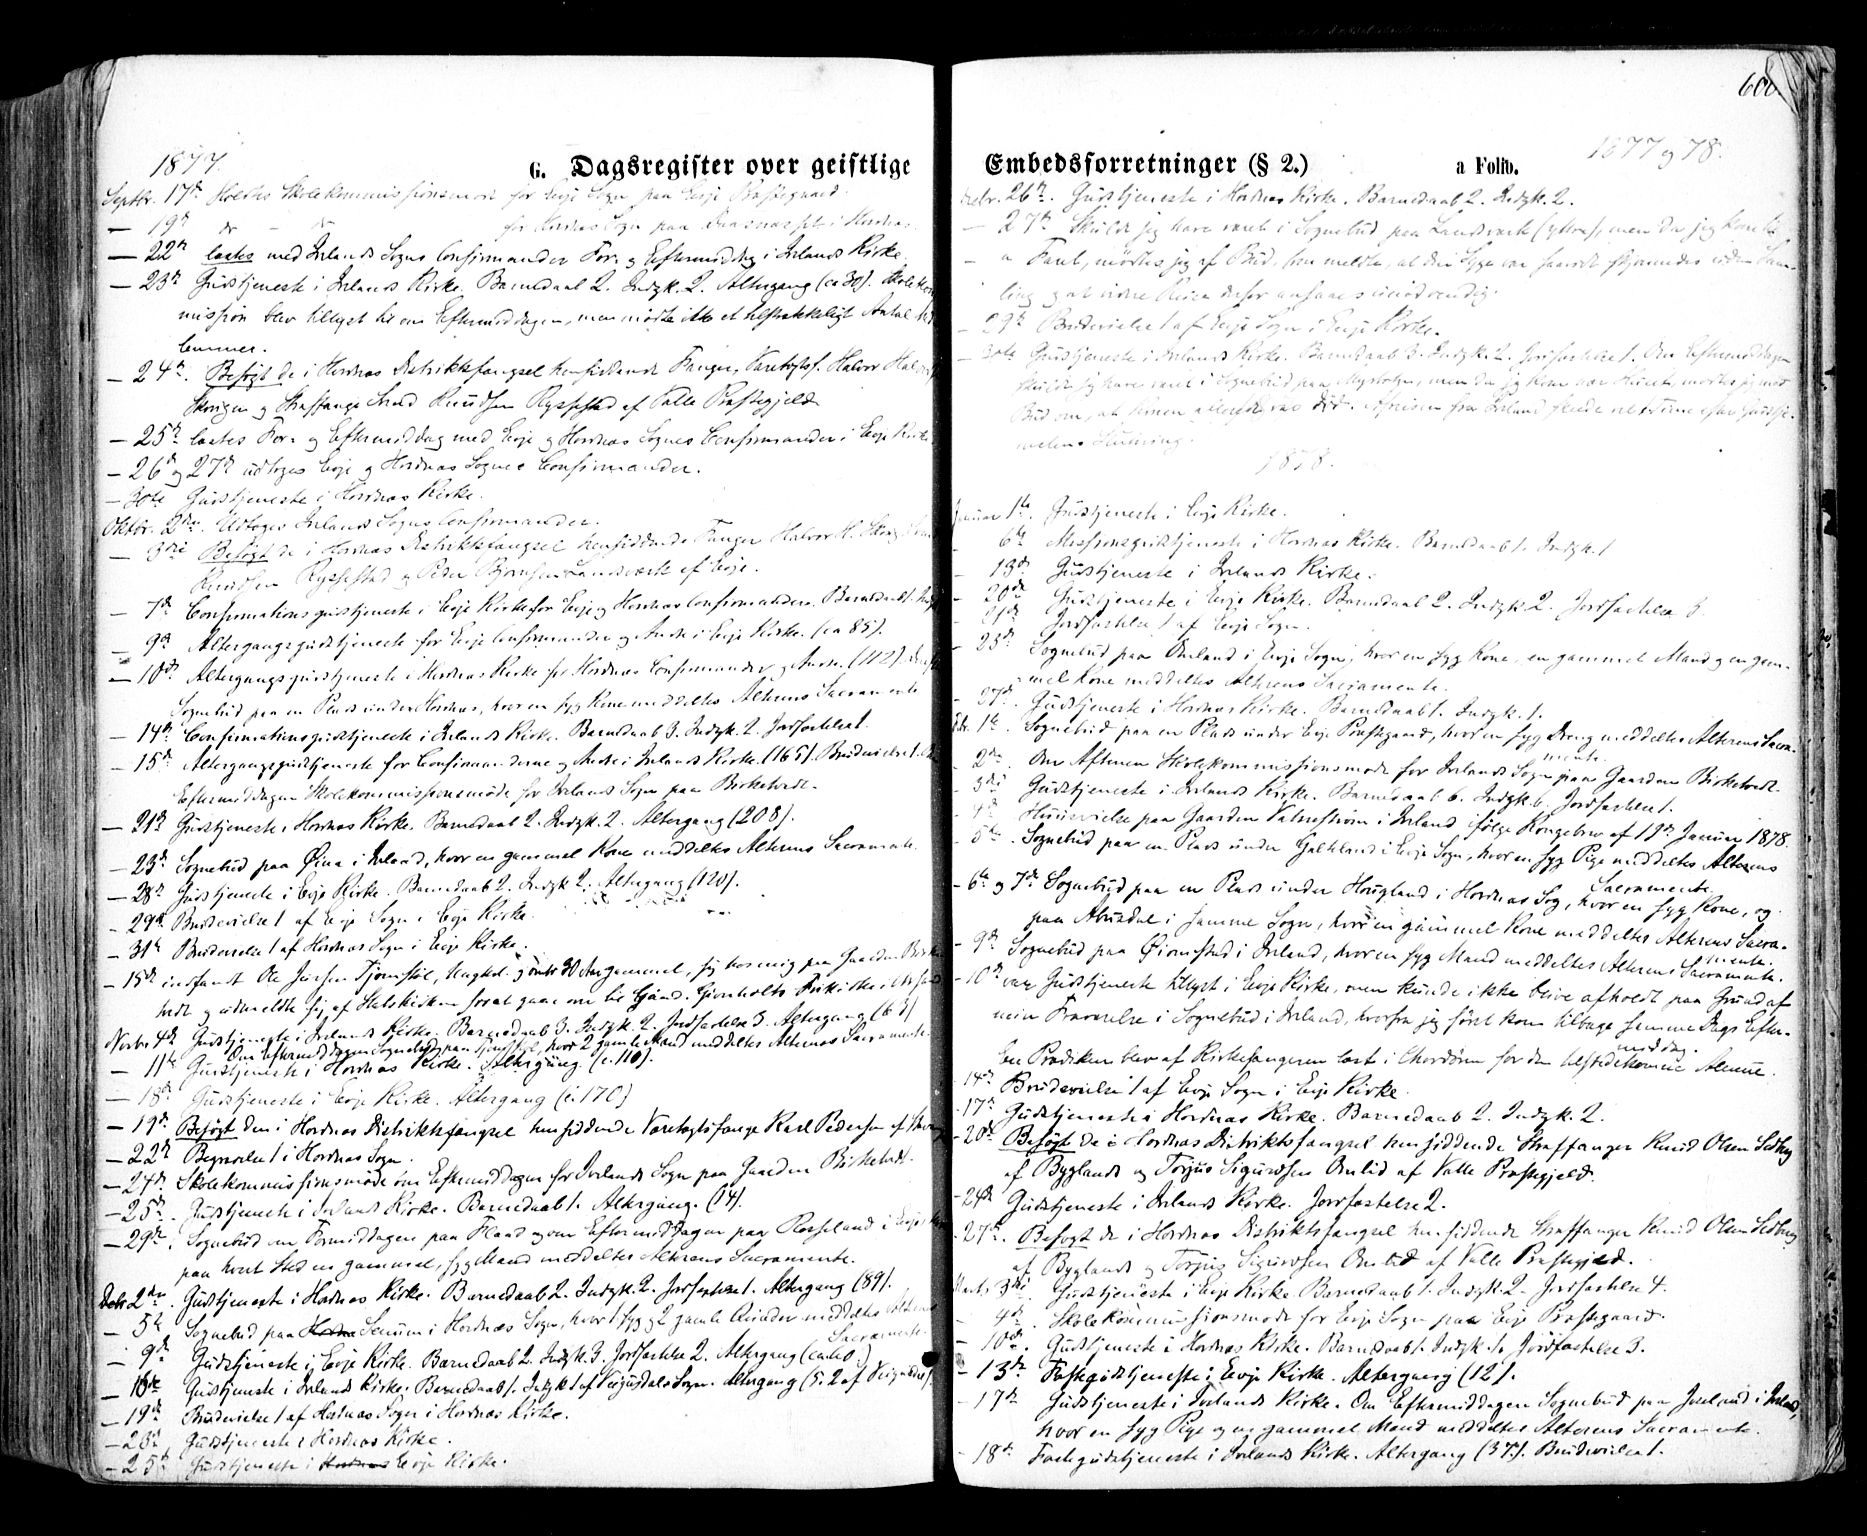 1877.
G. Dagsregister over geistlige
Septbr. 17de Holdtes Skolekommissionsmøde for Evje Sogn paa Evje Præstegaard.
— 19de do - do for Hordnæs Sogn paa i Hordnæs.
— 22de læstes med Ivelands Sogns Confirmander For- og Eftermiddag i Ivelands Kirke.
— 23de Gudstjeneste i Ivelands Kirke. Barnedaab 2. Indgk. 2. Altergang (ca 30). Skolekom
mission blev tillyst til om Eftermiddagen, men mødte ikke et tilstrækkeligt Antal Med
lemmer.
— 24de. Besøgt de i Hordnæs Distriktsfængsel hensiddende Fanger, Varetægtsf. Halvor
og Straffange Knudsen Rysstad af Valle Præstegjeld
— 25de læstes For- og Eftermiddag med Evje og Hordnæs Sognes Confirmander i Evje Kirke
— 26de og 27de udtoges Evje og Hordnæs Sognes Confirmander.
— 30te Gudstjeneste i Hordnæs Kirke.
Oktbr. 2den. Udtoges Ivelands Sogns Confirmander.
— 3die Besøgt de i Hordnæs Distriktsfængsel hensiddende Fanger Halvor H.
Knudsen Rysstad og Peder Bjørnsen Landsværk af Evje.
— 7de Confirmationsgudstjeneste i Evje Kirke for Evje og Hordnæs Confirmander. Barnedaab 1.
— 9de Altergangsgudstjeneste for Evje Confirmander og Andre i Evje Kirke. (ca 85).
— 10de Altergangsgudstjeneste i Hordnæs Kirke for Hordnæs Confirmander og Andre. (112).
Sognebud paa en Plads under Hordnæs, hvor en syg Kone meddeltes Alterens Sacramente
— 14de Confirmationsgudstjeneste i Ivelands Kirke. Barnedaab 3. Indgk. 2. Jordfæstelse 1.
— 15de Altergangsgudstjeneste for Confirmanderne og Andre i Ivelands Kirke. (165). Brudevielse 1.
Eftermiddagen Skolekommissionsmøde for Ivelands Sogn paa Birketvedt.
— 21de Gudstjeneste i Hordnæs Kirke. Barnedaab 2. Indgk. 2. Altergang (208).
— 23de Sognebud paa i Iveland, hvor en gammel Kone meddeltes Alterens Sacramente.
— 28de Gudstjeneste i Evje Kirke. Barnedaab 2. Indgk 2. Altergang (120).
— 29de Brudevielse 1 af Evje Sogn i Evje Kirke.
— 31te Brudevielse 1 af Hordnæs Sogn i Evje Kirke.
— 15de indfandt Ole Jensen Tjomstøl, Ungkarl og omtr 30 Aar gammel, sig hos mig paa Gaarden
tvedt og udmeldte sig af Statskirken for at gaae over til
Novbr 4de Gudstjeneste i Ivelands Kirke. Barnedaab 3. Indgk. 2. Jordfæstelse 3. Altergang (63)
Om Eftermiddagen Sognebud paa , hvor 2 gamle Mænd meddeltes Alterens Sacramente.
— 11te Gudstjeneste i Hordnæs Kirke. Altergang. (c. 110).
— 18de Gudstjeneste i Evje Kirke. Altergang (c. 170)
— 19de Besøgt den i Hordnæs Distriktsfængsel hensiddende Varetægtsfange Karl Pedersen af
— 22de Begravelse 1 i Hordnæs Sogn.
— 24de Skolekommissionsmøde om Eftermiddagen for Ivelands Sogn paa Gaarden Birketvedt.
— 25de. Gudstjeneste i Ivelands Kirke. Barnedaab 1. Altergang. (14).
— 29de. Sognebud om Formiddagen paa Flaad og om Eftermiddagen paa Rosseland i Evje
paa hvert Sted en gammel, syg Mand meddeltes Alterens Sacramente.
Decbr 2den. Gudstjeneste i Hordnæs Kirke. Barnedaab 2. Indgk. 2. Jordfæstelse 1. Altergang (89).
— 5te Sognebud paa Senum i Hordnæs Sogn, hvor 1 syg og 2 gamle Qvinder meddeltes Alterens
Sacramente.
— 9de Gudstjeneste i Evje Kirke. Barnedaab 2. Indgk 3. Jordfæstelse 2. Altergang (ca 110.)
— 16de Gudstjeneste i Ivelands Kirke. Barnedaab 1. Indgk 1 af Veigusdals Sogn. Altergang (5. 2 af
— 19de Brudevielse 1 af Hordnæs Sogn i Hordnæs Kirke.
— 23de Gudstjeneste i Hordnæs Kirke.
— 25de Gudstjeneste i Hordnæs Evje Kirke.
600.
1877 og 78.
Embedsforretninger (§ 2.) a Folio.
Decbr. 26de. Gudstjeneste i Hordnæs Kirke. Barnedaab 2. Indgk. 2.
— 27de Skulde jeg have været i Sognebud paa Landsværk (ytter), men da jeg kom til
Faret, mødtes jeg af Bud, som meldte, at den Syge var
ling og at videre Reise derfor ansaaes unødvendig.
— 29de Brudevielse 1 af Evje Sogn i Evje Kirke.
— 30te Gudstjeneste i Ivelands Kirke. Barnedaab 3. Indgk. 2. Jordfæstelse 1. Om Eftermiddagen
skulde jeg have været i Sognebud paa , men da jeg kom nær Huset, mødtes jeg med
Bud om, at Konen allerede var død. Afreisen fra Iveland skede
1878.
Januar 1te. Gudstjeneste i Evje Kirke.
— 6te Missionsgudstjeneste i Hordnæs Kirke. Barnedaab 1. Indgk. 1
— 13de Gudstjeneste i Ivelands Kirke.
— 20de Gudstjeneste i Evje Kirke. Barnedaab 2. Indgk 2. Jordfæstelse 3.
— 21de Jordfæstelse 1 af Evje Sogn.
— 25de Sognebud paa Omland i Evje Sogn, hvor en syg Kone, en gammel Mand og en gam-
mel Kone meddeltes Alterens Sacramente.
— 27de. Gudstjeneste i Hordnæs Kirke. Barnedaab 1. Indgk. 1.
Febr. 1te. Sognebud paa en Plads under Evje Præstegaard, hvor en syg Dreng meddeltes Alterens Sacra-
mente.
— 2den. Om Aftenen Skolekommissionsmøde for Ivelands Sogn paa Gaarden Birketvedt.
— 3die Gudstjeneste i Ivelands Kirke. Barnedaab 6. Indgk. 6. Jordfæstelse 1.
— 4de. Huusvielse paa Gaarden Vatnestrøm i Iveland ifølge Kongebrev af 19de Januar 1878.
— 5te. Sognebud paa en Plads under Galteland i Evje Sogn, hvor en syg Pige meddeltes Alterens
Sacramente.
— 6te og 7de Sognebud paa en Plads under Hougland i Hordnæs Sogn, hvor en syg Kone, og
paa Abusdal i samme Sogn, hvor en gammel Kone meddeltes Alterens Sacra-
mente.
— 9de Sognebud paa i Iveland, hvor en syg Mand meddeltes Alterens Sacramente.
— 10de var Gudstjeneste tillyst i Evje Kirke, men kunde ikke blive afholdt paa Grund af
min Fraværelse i Sognebud i Iveland, hvorfra jeg først kom tilbage samme Dags Efter-
middag.
En Prædiken blev af Kirkesangeren læst i Chordøren for den tilstedekomne Almue.
14de Brudevielse 1 af Evje Sogn i Evje Kirke
17de Gudstjeneste i Hordnæs Kirke. Barnedaab 2. Indgk. 2.
20de Besøgt de i Hordnæs Distriktsfængsel hensiddende Straffanger Knud Olsen
af Byglands og Torjus Sigurdsen Omlid af Valle Præstegjeld.
— 24de Gudstjeneste i Ivelands Kirke. Jordfæstelse 2.
— 27de. Besøgt de i Hordnæs Distriktsfængsel hensiddende Straffanger Knud Olsen
af Byglands og Torjus Sigurdsen Omlid af Valle Præstegjeld.
Marts 3die Gudstjeneste i Evje Kirke. Barnedaab 1. Indgk. 2. Jordfæstelse 4.
— 4de. Skolekommissionsmøde for Evje Sogn paa Evje Præstegaard.
— 10de. Gudstjeneste i Hordnæs Kirke. Barnedaab 1. Indgk. 1. Jordfæstelse 3.
— 13de Fastegudstjeneste i Evje Kirke. Altergang (12).
— 17de Gudstjeneste i Ivelands Kirke. Om Eftermiddagen Sognebud paa i Iveland,
hvor en syg Pige og en gammel Mand meddeltes Alterens Sacramente.
— 18de Fastegudstjeneste i Ivelands Kirke. Altergang (37). Brudevielse 1.